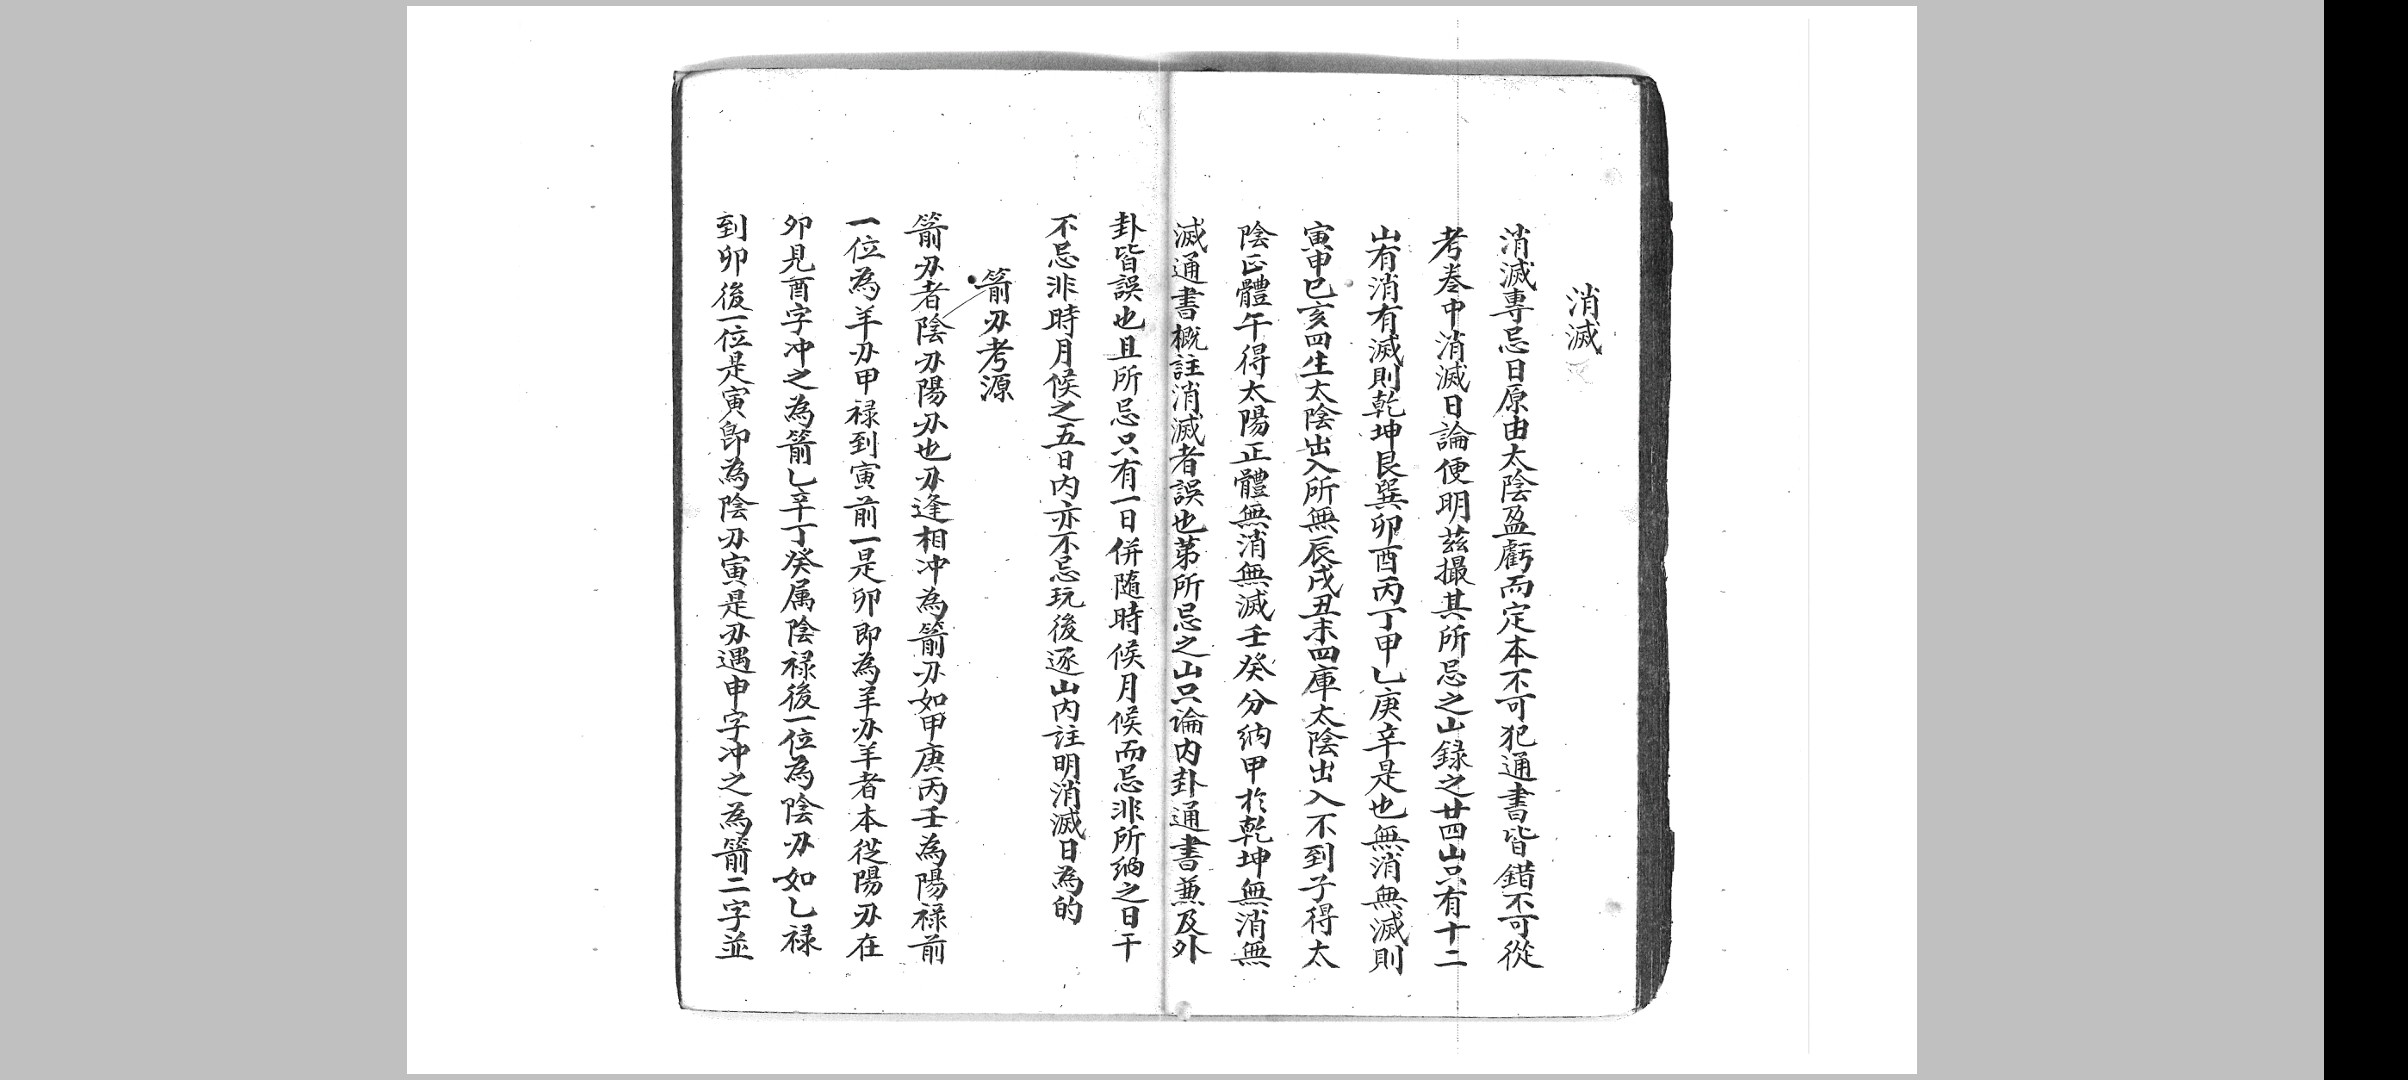 消滅
消滅專忌日原由太陰盈虧而定本不可犯通書皆錯不可從
考卷中消滅日論便明茲撮其所忌之山録之廿四山只有十二
山有消有滅則乾坤艮巽卯酉丙丁甲乙庚辛是也無消無滅則
寅申巳亥四生太陰出入所無辰戌丑未四庫太陰出入不到子得太
陰正體午得太陽正體無消無滅壬癸分納甲於乾坤無消無
滅通書概註消滅者誤也第所忌之山只論内卦通書兼及外
卦皆誤也且所忌只有一日併随時候月候而忌非所納之日干
不忌非時月候之五日内亦不忌玩後逐山内註明消滅日為的
箭刃考源
箭刃者陰刃陽刃也刃逢相冲為箭刃如甲庚丙壬為陽禄前
一位為羊刃甲禄到寅前一是卯即為羊刃羊者本從陽刃在
卯見酉字冲之為箭乙辛丁癸属陰禄後一位為陰刃如乙禄
到卯後一位是寅即為陰刃寅是刃遇申字冲之為箭二字並